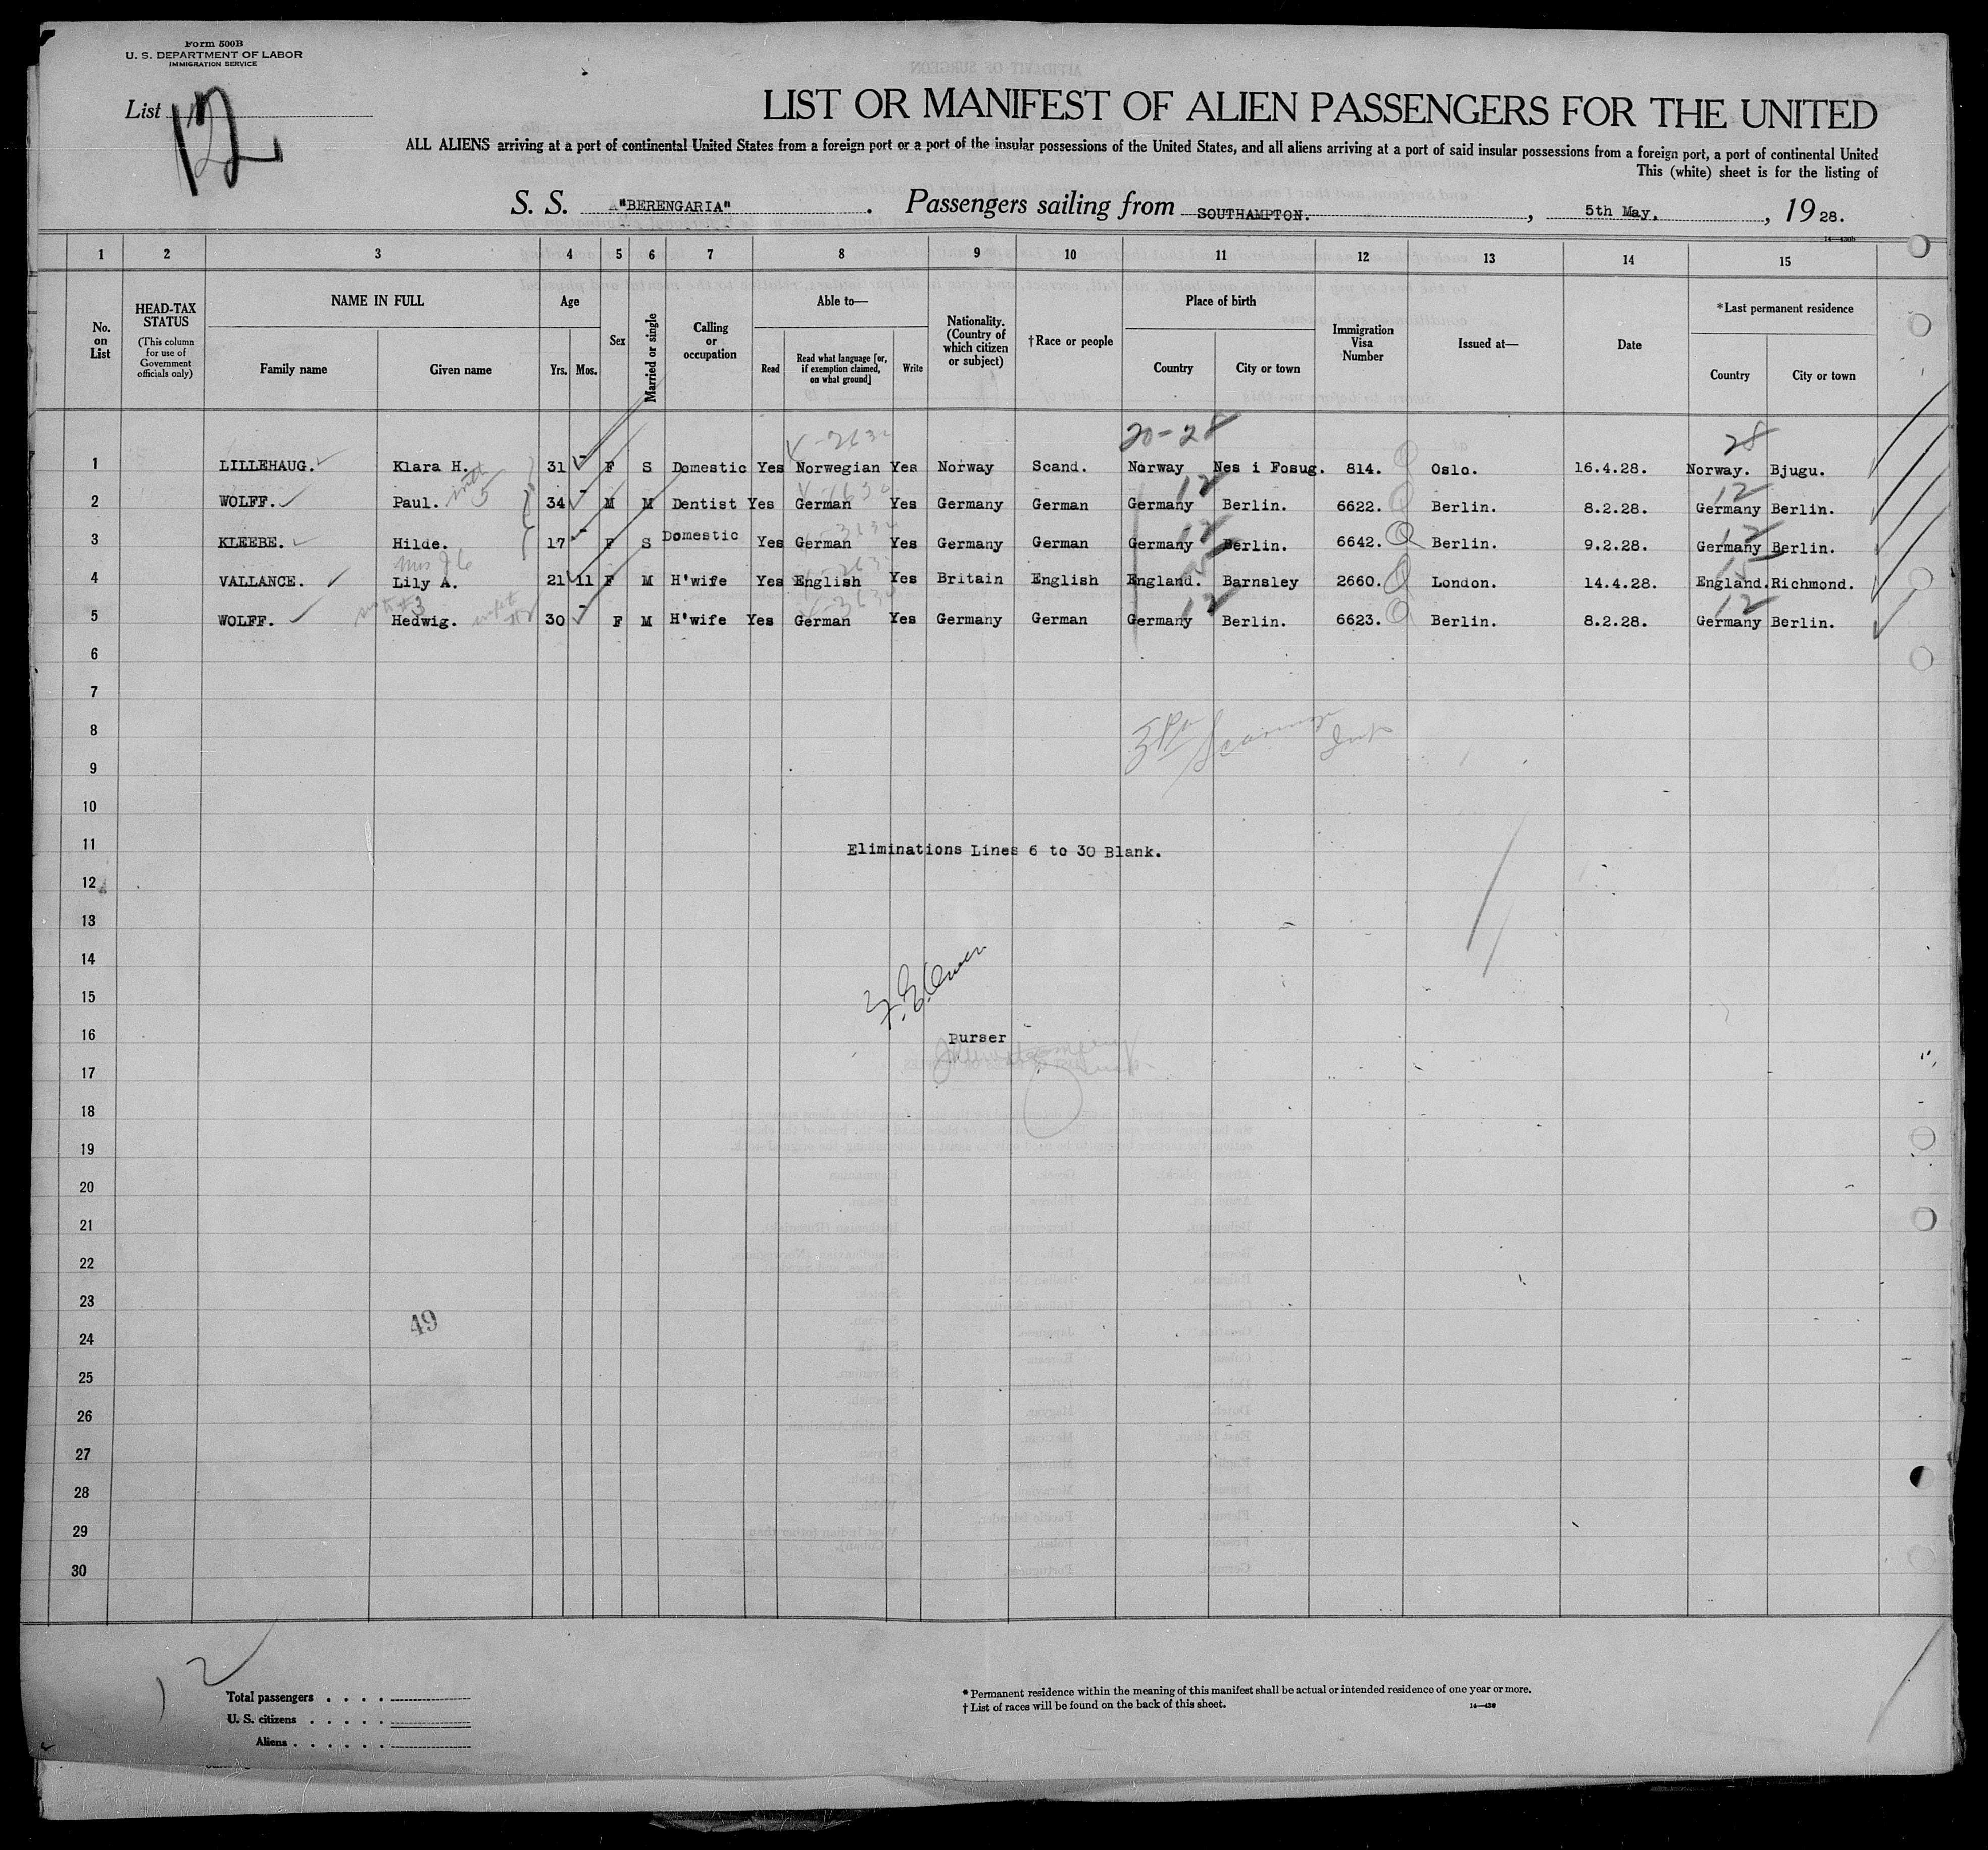 Form 500B
U. S. DEPARTMENT OF LABOR
IMMIGRATION SERVICE
List 12
LIST OR MANIFEST OF ALIEN PASSENGERS FOR THE UNITED
ALL ALIENS arriving at a port of continental United States from a foreign port or a port of the insular possessions of the United States, and all aliens arriving at a port of said insular possessions from a foreign port, a port of continental United
This (white) sheet is for the listing of
S. S. "BERENGARIA". Passengers sailing from SOUTHAMPTON., 5th May., 1928.
1 2 3 4 5 6 7 8 9 10 11 12 13 14 15
No. on List
HEAD-TAX STATUS (This column for use of Government officials only)
NAME IN FULL Family name Given name
Age Yrs. Mos.
Sex
Married or single
Calling or occupation
Able to— Read Read what language [or, if exemption claimed, on what ground] Write
Nationality. (Country of which citizen or subject)
†Race or people
Place of birth Country City or town
Immigration Visa Number
Issued at—
Date
*Last permanent residence Country City or town
20-28 28
1 LILLEHAUG. Klara H. 31 - F S Domestic Yes Norwegian Yes Norway Scand. Norway Nes i Fosug. 814. Oslo. 16.4.28. Norway. Bjugu.
12 12
2 WOLFF. Paul. 34 - M M Dentist Yes German Yes Germany German Germany Berlin. 6622. Berlin. 8.2.28. Germany Berlin.
12 12
3 KLEEBE. Hilde. 17 - F S Domestic Yes German Yes Germany German Germany Berlin. 6642. Berlin. 9.2.28. Germany Berlin.
15 15
4 VALLANCE. Lily A. 21 11 F M H'wife Yes English Yes Britain English England. Barnsley 2660. London. 14.4.28. England. Richmond.
12 12
5 WOLFF. Hedwig. 30 - F M H'wife Yes German Yes Germany German Germany Berlin. 6623. Berlin. 8.2.28. Germany Berlin.
6
7
8
9
10
11 Eliminations Lines 6 to 30 Blank.
12
13
14
15
16 Purser
17
18
19
20
21
22
23
49
24
25
26
27
28
29
30
12
Total passengers . . . .
U. S. citizens . . . . .
Aliens . . . . . .
* Permanent residence within the meaning of this manifest shall be actual or intended residence of one year or more.
† List of races will be found on the back of this sheet.
14—430